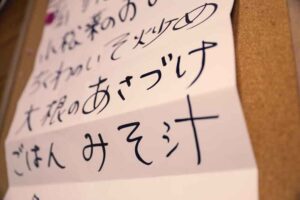 小松菜のおひ
ちくわのいそ炒め
大根のあさづけ
ごはん みそ汁